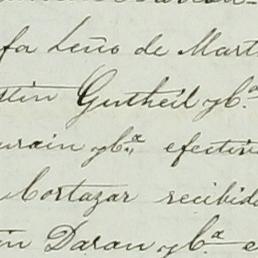 fa Leño de Mart
stin Gutheil y C.ª
urain y C.ª efectiv
Cortazar recibid
in Daran y C.ª e